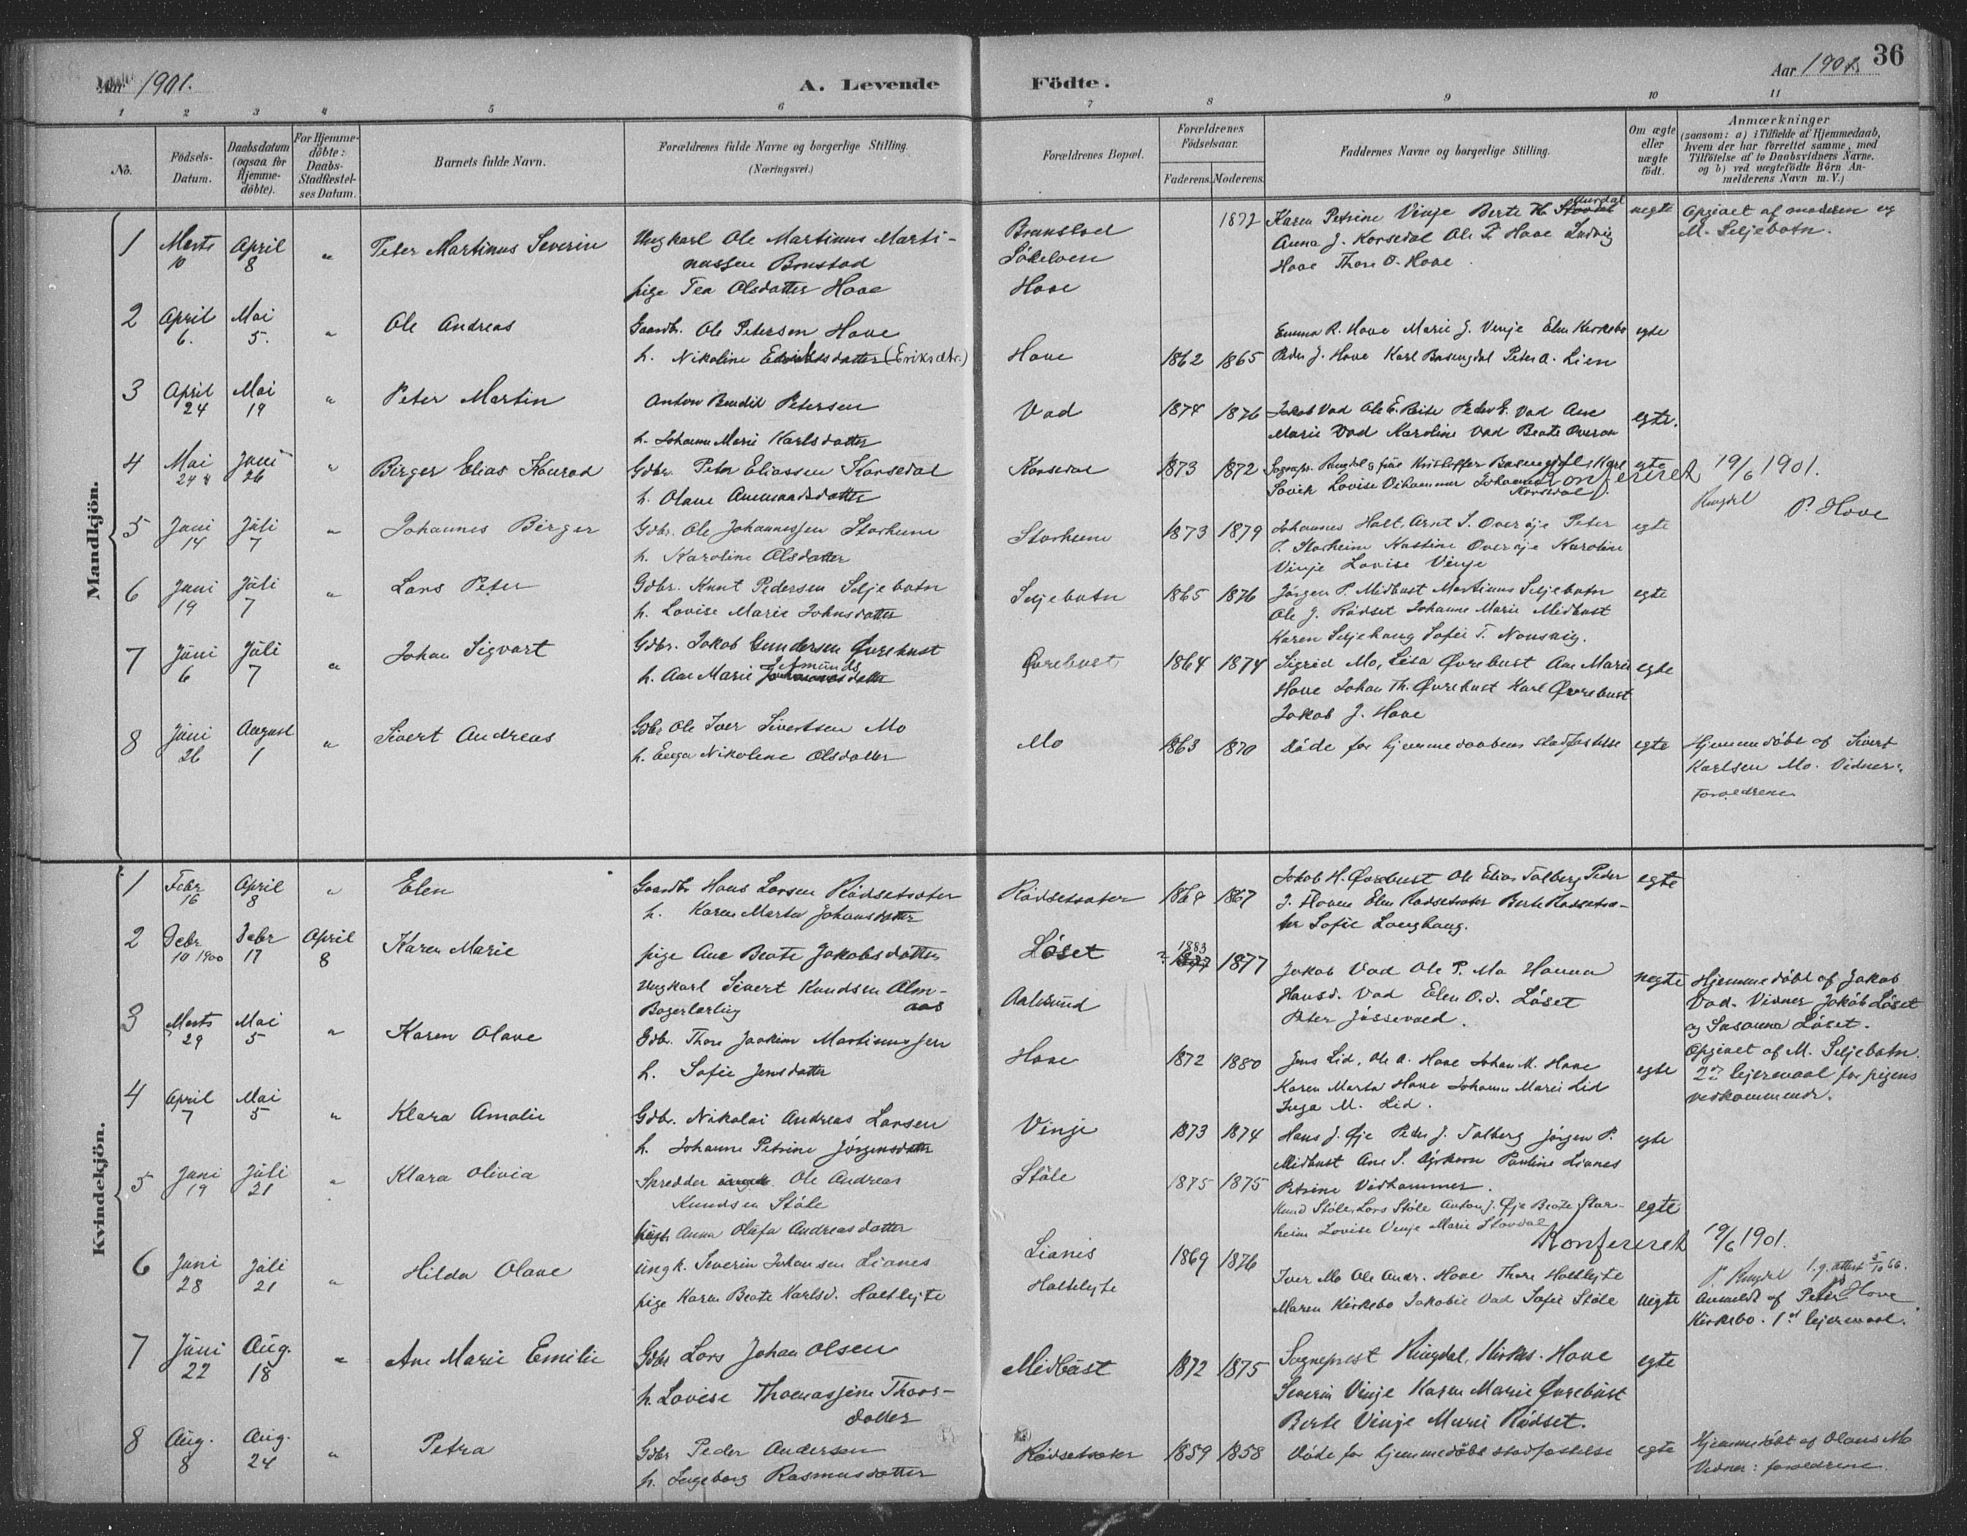 Aar 1901. A. Levende Födte. Aar 1901. 36
1 2 3 4 5 6 7 8 9 10 11
No. Födsels-Datum. Daabsdatum (ogsaa for Hjemme-döbte). For Hjemme-döbte: Daabs-Stadfæstel-ses Datum. Barnets fulde Navn. Forældrenes fulde Navne og borgerlige Stilling. (Næringsvei.) Forældrenes Bopæl. Forældrenes Födselsaar. Faderens. Moderens. Faddernes Navne og borgerlige Stilling. Om ægte eller uægte födt. Anmærkninger (saasom: a) i Tilfælde af Hjemmedaab, hvem der har forrettet samme, med Tilföielse af to Daabsvidners Navne, og b) ved uægtefödte Börn An-melderens Navn m. V.)
Mandkjön.
1 Marts 10 April 8 " Peter Martinus Severin Ungkarl Ole Martinus Marti-
nussen Bonstad
pige Tea Olsdatter Hove
Søkelven
Hove
1872 Karen Petrine Vinje Berte H.
Anna J. Korsedal Ole P. Hove Ludvig
Hove Thore O. Hove.
uegte Opgivet af moderen og
M. Seljebotn.
2 April 6. Mai 5. " Ole Andreas Gaardbr. Ole Petersen Hove
h. Nikoline (Eriksdtr.) Hove 1862 1865
Emma R. Hove Marie J. Vinje Elen Kirkebo
Peder J. Hove Karl Basengdal Peter A. Lien egte
3 April 24 Mai 19 " Peter Martin Anton Bendik Petersen
h. Johanne Marie Karlsdatter Vad 1874 1876
Jakob Vad Ole E. Peder E. Vad Ane
Marie Vad Karoline Vad Beate egte.
4 Mai 24 Juni 26 " Birger Elias Konrad Gdbr. Peter Eliassen Korsedal
h. Olave Korsedal 1873 1872
Sognepr. Ringdal & frue Kristoffer Basengdal Karl
Lovise Vihammer Johanne Korsedal egte
Konfereret 19/6 1901.
Ringdal P. Hove
5 Juni 14 Juli 7 " Johannes Birger Gdbr. Ole Johannessen Storheim
h. Karoline Olsdatter Storheim 1873 1879
Johannes Holt Arnt S. Overøje Peter
P. Storheim Kastine Overøje Karoline
Vinje Lovise Vinje egte
6 Juni 19 Juli 7 " Lars Peter Gdbr. Knut Pedersen Seljebotn
h. Lovise Marie Johnsdatter Seljebotn 1865 1876
Jørgen P. Midbust Martinus Seljebotn
Ole J. Rødset Johanne Marie Midbust
Karen Seljehaug Sofie T. egte
7 Juni 6 Juli 7 " Johan Sigvart Gdbr. Jakob Gundersen Øvrebust
h. Ane Marie Øvrebust 1864 1874
Sigrid Mo, Lisa Øvrebust Ane Marie
Hove Johan Th. Øvrebust Karl Øvrebust
Jakob J. Hove egte
8 Juni 26 August 1 " Sivert Andreas Gdbr Ole Iver Sivertsen Mo
h. Nikoline Olsdatter Mo 1863 1870
Døde før hjemmedaabens stadfæstelse egte
Hjemmedøbt af Sivert
Karlsen Mo. Vidner:
Forældrene
Kvindekjön.
1 Febr 16 April 8 " Elen Gaardbr Hans Larsen Rødsetsæter
h. Karen Marta Johansdatter Rødsetsæter 1864 1867
Jakob H. Øvrebust Ole Elias Talberg Peder
J. Hoven Elen Rødsetsæter Berte Rødsetsæ-
ter Sofie egte
2 Febr 10 1900 Febr 17 April 8 Karen Marie pige Ane Beate Jakobsdatter
Ungkarl Sivert Knudsen Alm-
aas
Bagerlærling Løset
Aalesund 1883 1877
Jakob Vad Ole P. Mo Hanna
Hansd. Vad Elen O.d. Løset
Peter uegte
Hjemmedøbt af Jakob
Vad. Vidner Jakob Løset
og Susanna Løset.
Opgivet af M. Seljebotn.
2det lejermaal for pigens
vedkommende.
3 Marts 29 Mai 5 " Karen Olave Gdbr. Thore Joakim Martinussen
h. Sofie Jensdatter Hove 1872 1880
Jens Lid, Ole A. Hove Johan M. Hove
Karen Marta Hove Johanne Marie Lid
Inga M. Lid. egte
4 April 7 Mai 5 " Klara Amalie Gdbr. Nikolai Andreas Larsen
h. Johanne Petrine Jørgensdatter Vinje 1873 1874
Hans J. Øje Peder J. Talberg Jørgen P.
Midbust Ane S. Pauline Lianes
Petrine Vidhammer. egte
5 Juni 19 Juli 21 " Klara Olivia Ole Andreas
Knudsen Støle
Anna Olafa Andreasdatter Støle 1875 1875
Knud Støle, Lars Støle Anton J. Øje Beate Stor-
heim Lovise Vinje Marie egte
Konfereret 19/6 1901.
P. Ringdal P. Hove
6 Juni 28 Juli 21 " Hilda Olave ungk. Severin Johansen Lianes
pige Karen Beate Karlsd. Holtlejte Lianes
Holtlejte 1869 1876
Iver Mo Ole Andr. Hove Thore Holtlejte
Maren Kirkebo Jakobie Vad Sofie Støle uegte
1. g. attest 5/10 66.
Anmeldt af Peter
Kirkebo. 1ste lejermaal.
7 Juni 22 Aug. 18 " Ane Marie Emilie Gdbr Lars Johan Olsen
h. Lovise Thomassine Thors-
datter Midbust 1872 1875
Sogneprest Ringdal, Kirkes. Hove
Severin Vinje Karen Marie Øvrebust
Berte Vinje Marie Rødset. egte
8 Aug. 8 Aug. 24 " Petra Gdbr Peder Andersen
h. Ingeborg Rasmusdatter Rødsetsæter 1859 1858
Døde før hjemmedøbt stadfæstelse egte
Hjemmedøbt af Olaus Mo
Vidner: forældrene.